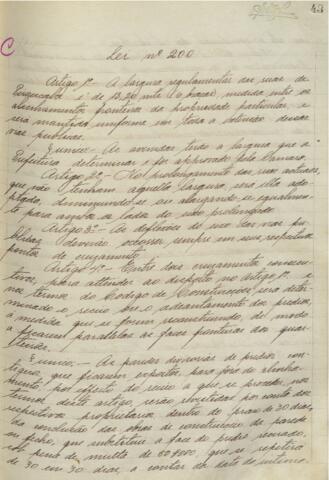 43
Lei nº 200
Artigo 1º - A largura regulamentar das ruas de
é de 13,20 mts (6 braças), medida entre os
alinhamentos fronteiros da propriedade particular, e
será mantida uniforme em toda a extensão dessas
vias publicas.
§ unico - As avenidas terão a largura que a
Prefeitura determinar e for approvada pela Camara.
Artigo 2º - No prolongamento das ruas actuaes,
que não tenham aquella largura, será ella
adoptada, diminuindo-se ou alargando-se egualmente
para ambos os lados do eixo prolongado.
Artigo 3º - As deflexões de eixo das vias
publicas deverão occorrer sempre em seus respectivos
pontos de cruzamento.
Artigo 4º - Entre dois cruzamentos consecutivos,
para attender ao disposto no Artigo 1º e
nos termos do Codigo de Construcções, será
determinado o recuo ou o adeantamento dos predios,
á medida que se forem reconstruindo, de modo
a ficarem parallelas as faces fronteiras dos
quarteirões.
§ unico - As paredes divisorias de predios
contiguos, que ficarem expostas para fóra do alinhamento,
por effeito do recuo a que se proceda, nos
termos deste artigo, serão revestidas por conta dos
respectivos proprietarios dentro do prazo de 30 dias,
da conclusão das obras de construcção da parede
ou fecho, que substitua a face do predio recuado,
sob pena de multa de 50$000, que se repetirá
de 30 em 30 dias, a contar da data do